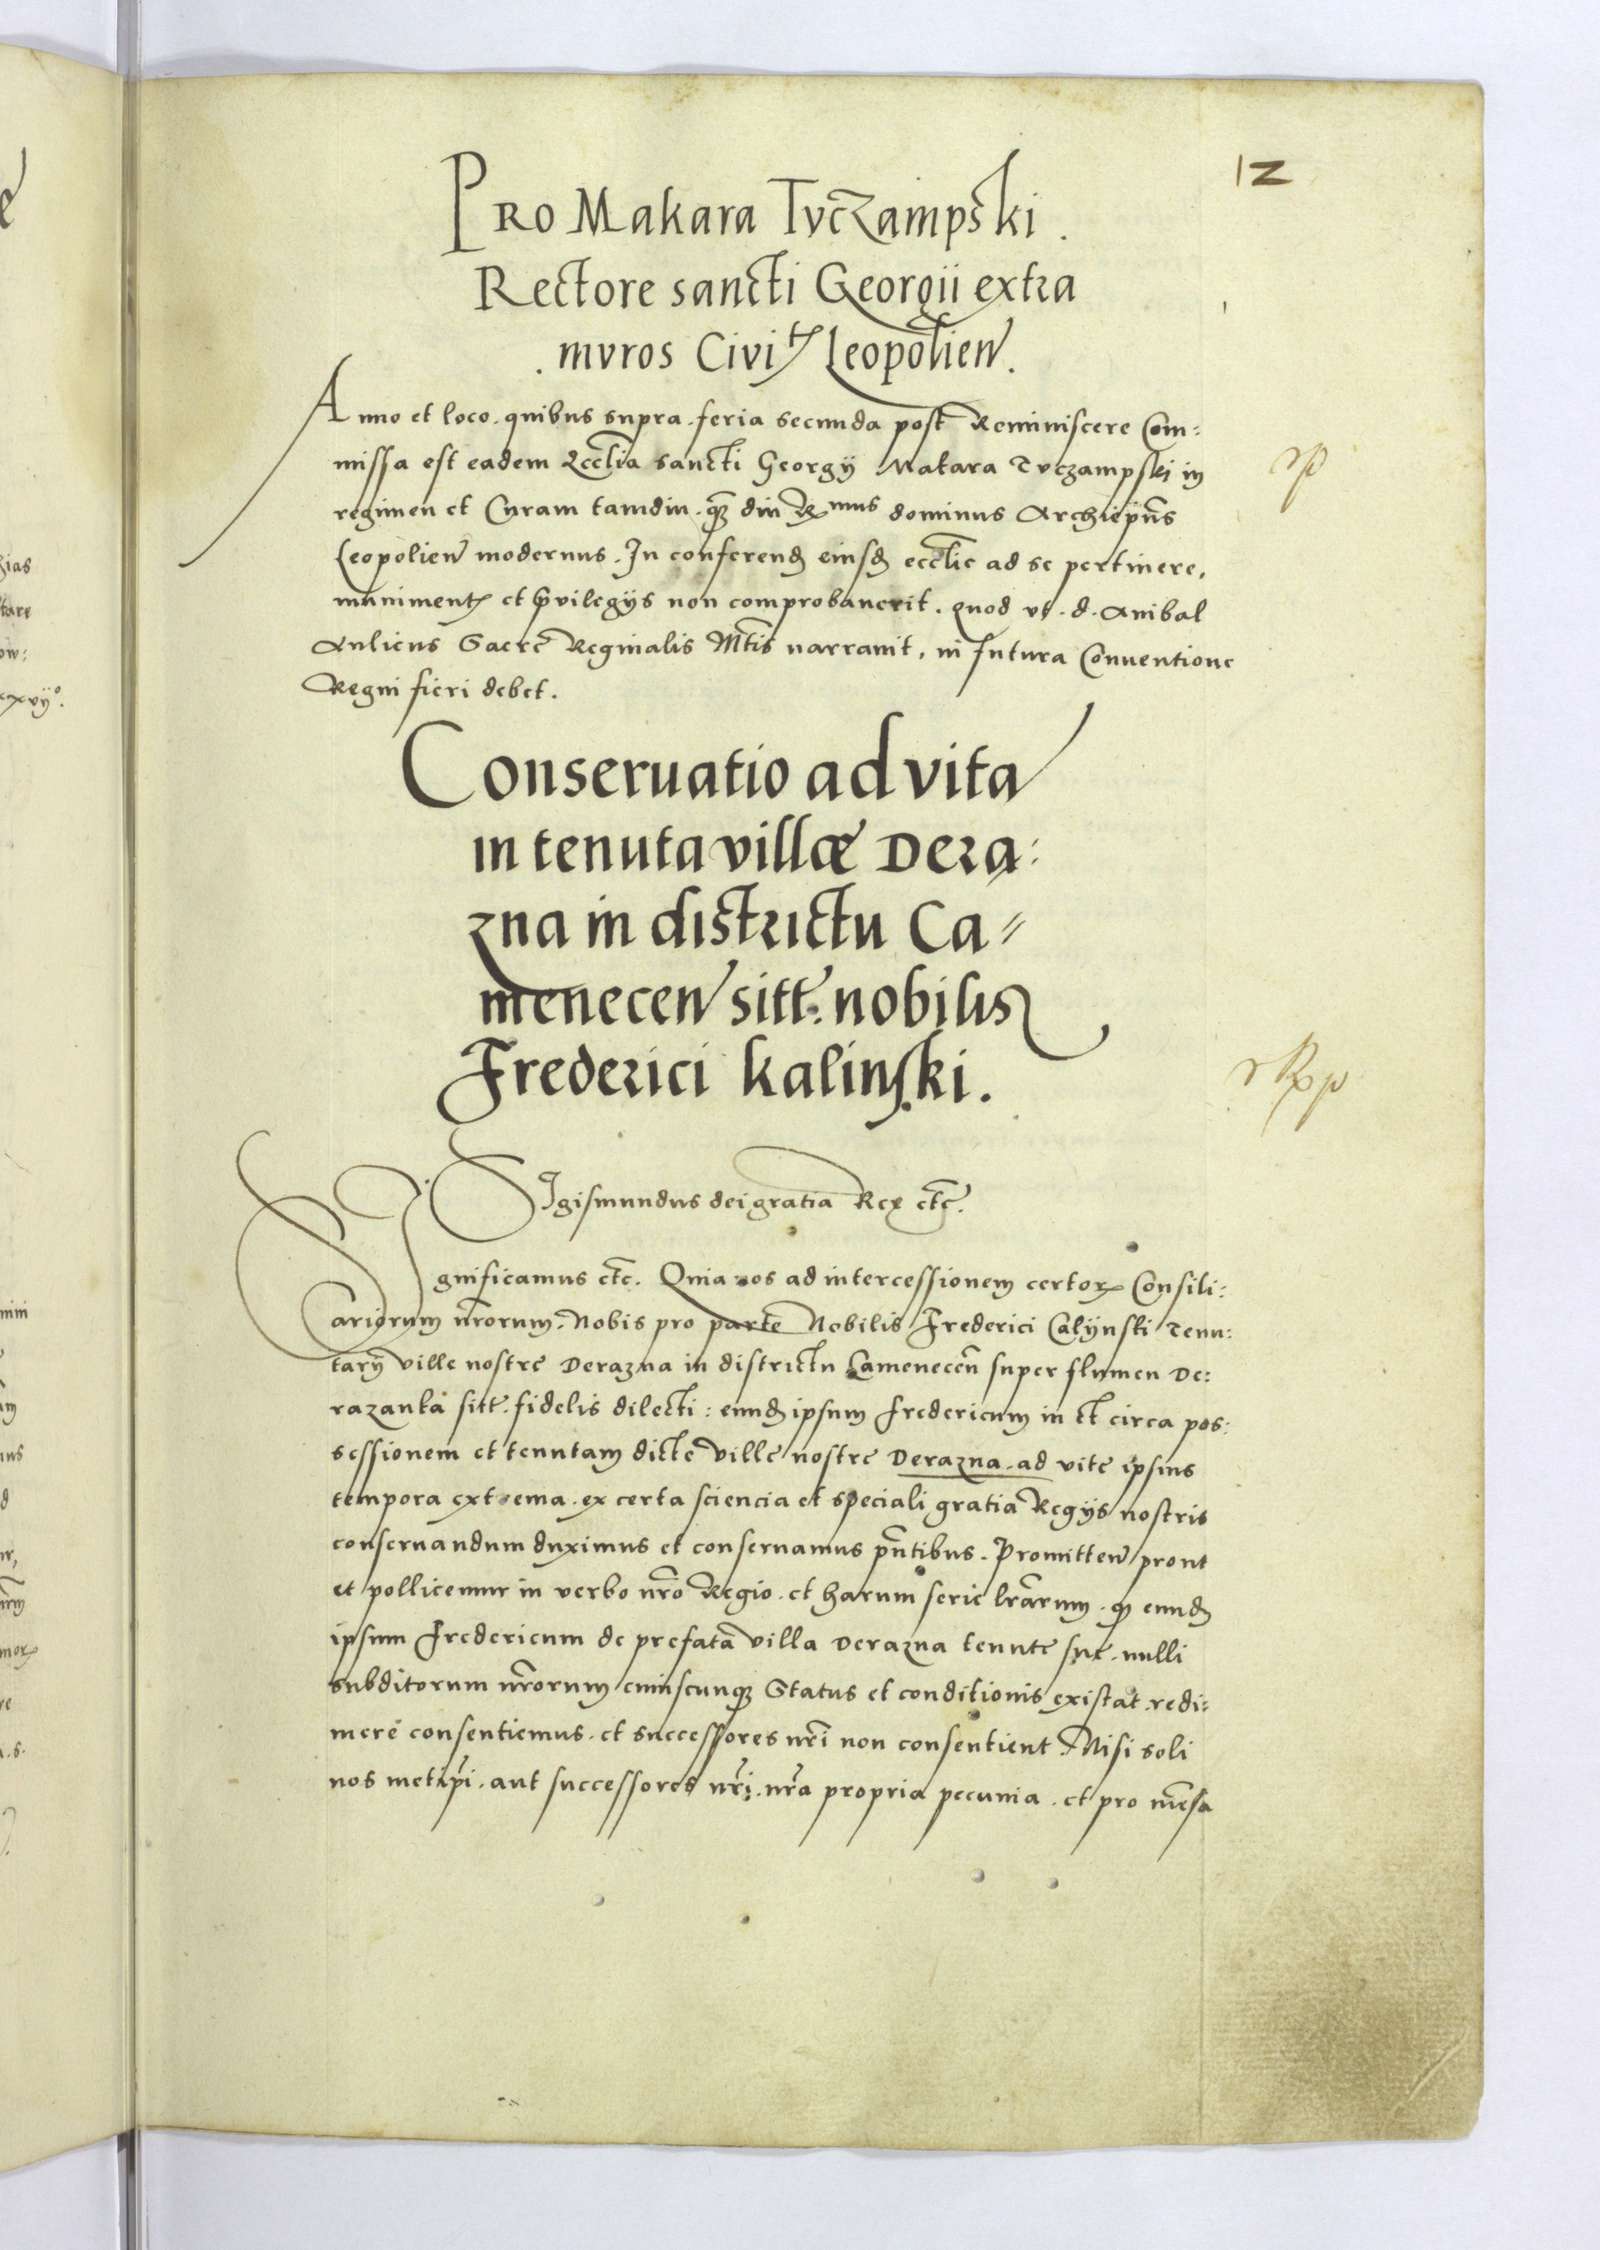 12
Pro Makara Tvczampski.
Rectore sancti Georgii extra
. mvros Civi Leopolien.
Anno et loco. quibus supra. feria secunda post Reminiscere Com:
missa est eadem Ecclia sancti Georgy Makara Tvczampski in
regimen et Curam tamdiu. quam diu Rmus dominus Archiepūs
Leopolien modernus. In conferend eiusd ecclie ad se pertinere,
muniment et privilegys non comprobauerit. Quod vt. d. Anibal
Aulicus Sacre Reginalis Mtis narrauit, in futura Conuentione
Regni fieri debet.
Conseruatio ad vita
in tenuta villæ Dera:
zna in districtu Ca=
menecen sitt. nobilis
Frederici Kalinski.
Sigismundus dei gratia Rex etc.
Significamus etc. Quia nos ad intercessionem certor Consili:
ariorum nrorum. Nobis pro parte Nobilis Frederici Calijnski Tenu:
tarij ville nostre Derazna in districtu Camenecen super flumen De:
razanka sitt. fidelis dilecti: eund ipsum Fredericum in et circa pos:
sessionem et tenutam dicte ville nostre Derazna. ad vite ipsius
tempora extrema. ex certa sciencia et speciali gratia Regijs nostris
conseruandum duximus et conseruamus pntibus. Promitten prout
et pollicemur in verbo nro Regio. et harum serie lrarum. q eund
ipsum Fredericum de prefata villa Derazna tenute sue. nulli
subditorum nrorum cuiuscunq Status et conditionis existat redi:
mere consentiemus. et successores nri non consentient. Nisi soli
nos metipsi. aut successores nri. nra propria pecunia. et pro mensa